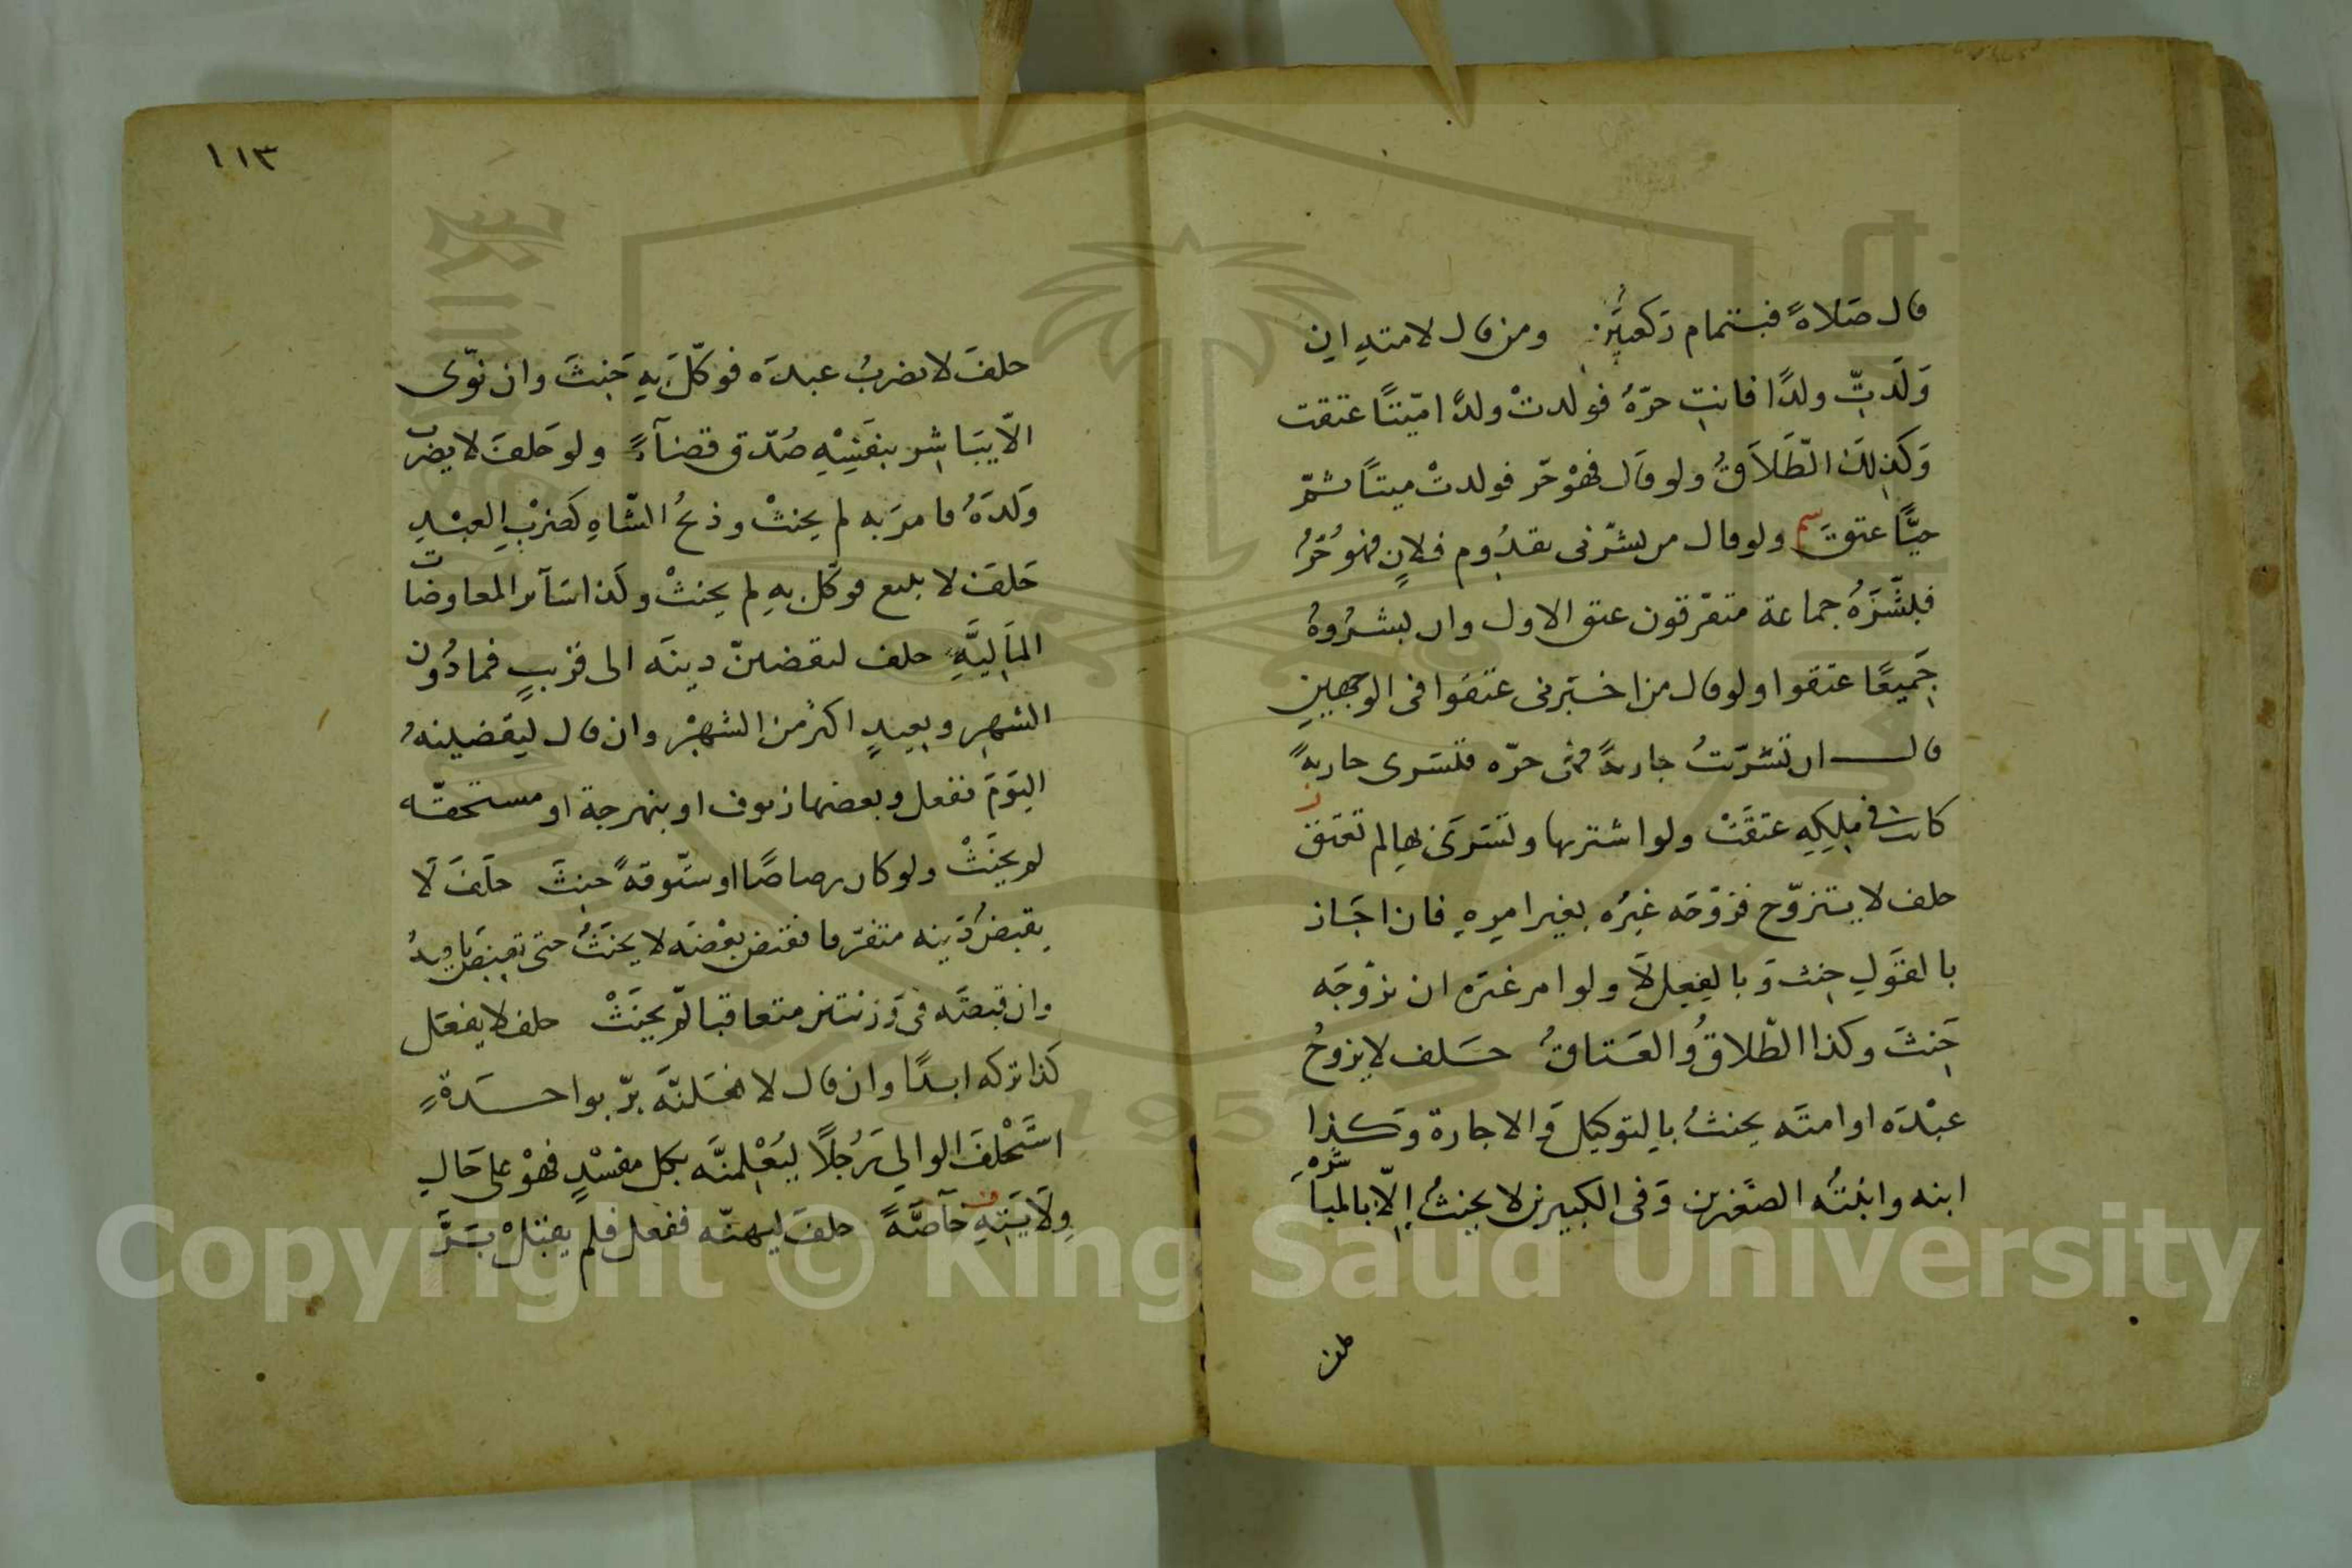 قال صَلاةً فبتمام ركعتَين ومن قال لامتهِ ان
وَلَدتِّ ولدًا فانتِ حرّةٌ فولدتْ ولدًا ميّتًا عتقت
وَكذلِكَ الطَّلَاقُ ولو قال فهوْ حرّ فولدتْ ميتًا ثمّ
حيًّا عتقَ سم ولو قال من بشّرنى بقدُوم فلانٍ فهوُ حُرٌّ
فبشّرَهُ جماعة متفرّقون عتق الاول وان بشرُوهُ
جَميعًا عتقوا ولو قال من اخبَرنى عتقوا فى الوجهين
قال ان تسَرّيتُ جاريةً فهى حرّه فتسَرى جاريةً
كانت فى مِلكِهِ عتقَتْ ولو اشتريها وتسَرىَ بها لم تعتق ز
حلف لا يتزوّج فزوّجَه غيرُه بغير امرهِ فان اجَاز
بالقَولِ حنث وَبالفِعلِ لَا ولو امر غيرَه ان يزوّجَه
حَنِثَ وكذا الطّلاقُ والعَتاقُ حَلف لا يزوجُ
عبْدَه او امتَه يحنثُ بالتوكيل وَالاجازة وَكَذا
ابنه وابنتُه الصغَيرين وَفى الكبيرين لا يحنثُ اِلّا بالمباشرَةِ
حلفَ لا يضربُ عبدَه فوكّلَ بهِ حَنِثَ وان نوّى
الّا يبَاشِر بنفَسِهِ صُدّق قضآءً ولو حَلفَ لا يضرب
وَلَدَهُ فامرَ به لم يحنثْ وذبحُ الشّاهِ كَضربِ العبْدِ
حَلفَ لا يبيع فوكّل بهِ لم يحنثْ وكَذا سَآئر المعاوضات
المَاليَّهِ حلف ليقضينّ دينَه الى قريبٍ فما دُون
الشهرِ وبعيدٍ اكثرُ من الشهْر وان قال ليقضينهُ
اليَومَ ففعل وبعضها زيوف او بنهرجة او مستحقّه
لم يحنَثْ ولو كان رصاصًا او ستّوقةً حنِثَ حلَفَ لَا
يقبضُ دَينه متفرّقا فقبض بعْضَه لا يحنَثُ حتى يقبضَ باقيهُ
وان قبضَه فى وَزنتين متعاقبا لم يحنَثْ حلف لا يفعَل
كذا تركه ابدًا وان قال لافعَلنَّه برّ بواحدَةٍ
استَحْلفَ الوالي رَجُلًا ليُعْلِمنَّه بكل مفسْدٍ فهوْ على حَالِ
وِلَايَتهِ خآصّةً حلفَ ليهبنّه ففعل فلم يقبَلْ بَرَّ
١١٣